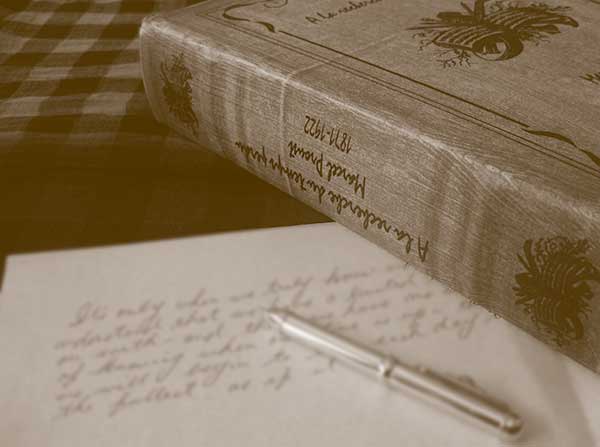 A la recherc
A la recherche du temps perdu
Marcel Proust
1871-1922
It's only when we truly know
understand that we have a limited
on earth and that we have no
of knowing when our time is up
we will begin to each day
the fullest as if it